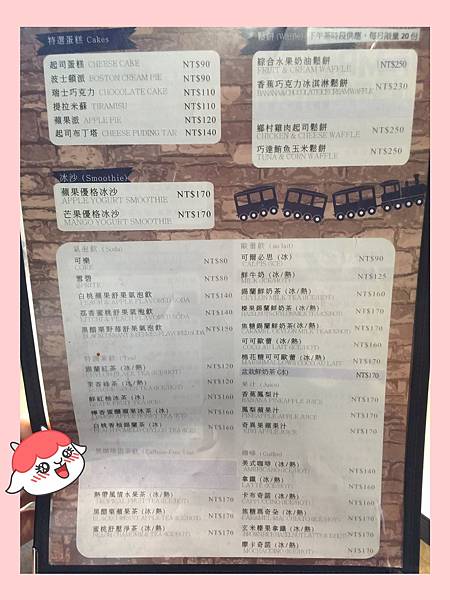 特選蛋糕 Cakes
起司蛋糕 CHEESE CAKE NT$90
波士頓派 BOSTON CREAM PIE NT$90
瑞士巧克力 CHOCOLATE CAKE NT$110
提拉米蘇 TIRAMISU NT$110
蘋果派 APPLE PIE NT$120
起司布丁塔 CHEESE PUDING TAR NT$140
鬆餅 (Waffle) 下午茶時段供應，每月限量 20 份
綜合水果奶油鬆餅 NT$250
FRUIT & CREAM WAFFLE
香蕉巧克力冰淇淋鬆餅 NT$230
BANANA&CHOCOLATE ICECREAM WAFFLE
鄉村雞肉起司鬆餅 NT$250
CHICKEN & CHEESE WAFFLE
巧達鮪魚玉米鬆餅 NT$250
TUNA & CORN WAFFLE
冰沙 (Smoothie)
蘋果優格冰沙 NT$170
APPLE YOGURT SMOOTHIE
芒果優格冰沙 NT$170
MANGO YOGURT SMOOTHIE
氣泡飲 (Soda)
可樂 NT$80
COKE
雪碧 NT$80
SPRITE
白桃蘋果舒果氣泡飲 NT$140
荔香蜜桃舒果氣泡飲 NT$140
黑醋栗野莓舒果氣泡飲 NT$150
(Tea)
錫蘭紅茶 (冰/熱) NT$120
茉香綠茶 (冰/熱) NT$120
鮮紅柚冰茶 (冰) NT$160
檸香蜜蘋爾果冰茶 (冰) NT$160
白桃香柚錫蘭茶 (冰) NT$160
(Caffeine-Free Tea)
熱帶風情水果茶 (冰/熱) NT$170
TROPICAL FRUIT TEA (ICE/HOT)
黑醋栗蘋果茶 (冰/熱) NT$170
蜜桃舒壓淨茶 (冰/熱) NT$170
歐蕾飲 (au lait)
可爾必思 (冰) NT$90
CALPIS (ICE)
鮮牛奶 (冰/熱) NT$125
MILK (ICE/HOT)
錫蘭鮮奶茶 (冰/熱) NT$160
CEYLON MILK TEA (ICE/HOT)
榛果錫蘭鮮奶茶 (冰/熱) NT$170
焦糖錫蘭鮮奶茶 (冰/熱) NT$170
可可歐蕾 (冰/熱) NT$160
COCO AU LAIT (ICE/HOT)
棉花糖可可歐蕾 (冰/熱) NT$170
盆栽鮮奶茶 (冰) NT$170
果汁 (Juice)
香蕉鳳梨汁 NT$170
BANANA PINEAPPLE JUICE
鳳梨蘋果汁 NT$170
PINEAPPLE APPLE JUICE
奇異果蘋果汁 NT$170
KIWI APPLE JUICE
咖啡 (Coffee)
美式咖啡 (冰/熱) NT$140
AMERICANO (ICE/HOT)
拿鐵 (冰/熱) NT$160
LATTE (ICE/HOT)
卡布奇諾 (冰/熱) NT$160
CAPPUCCINO (ICE/HOT)
焦糖瑪奇朵 (冰/熱) NT$170
玄米榛果拿鐵 (冰/熱) NT$170
摩卡奇諾 (冰/熱) NT$170
MOCHACCINO (ICE/HOT)